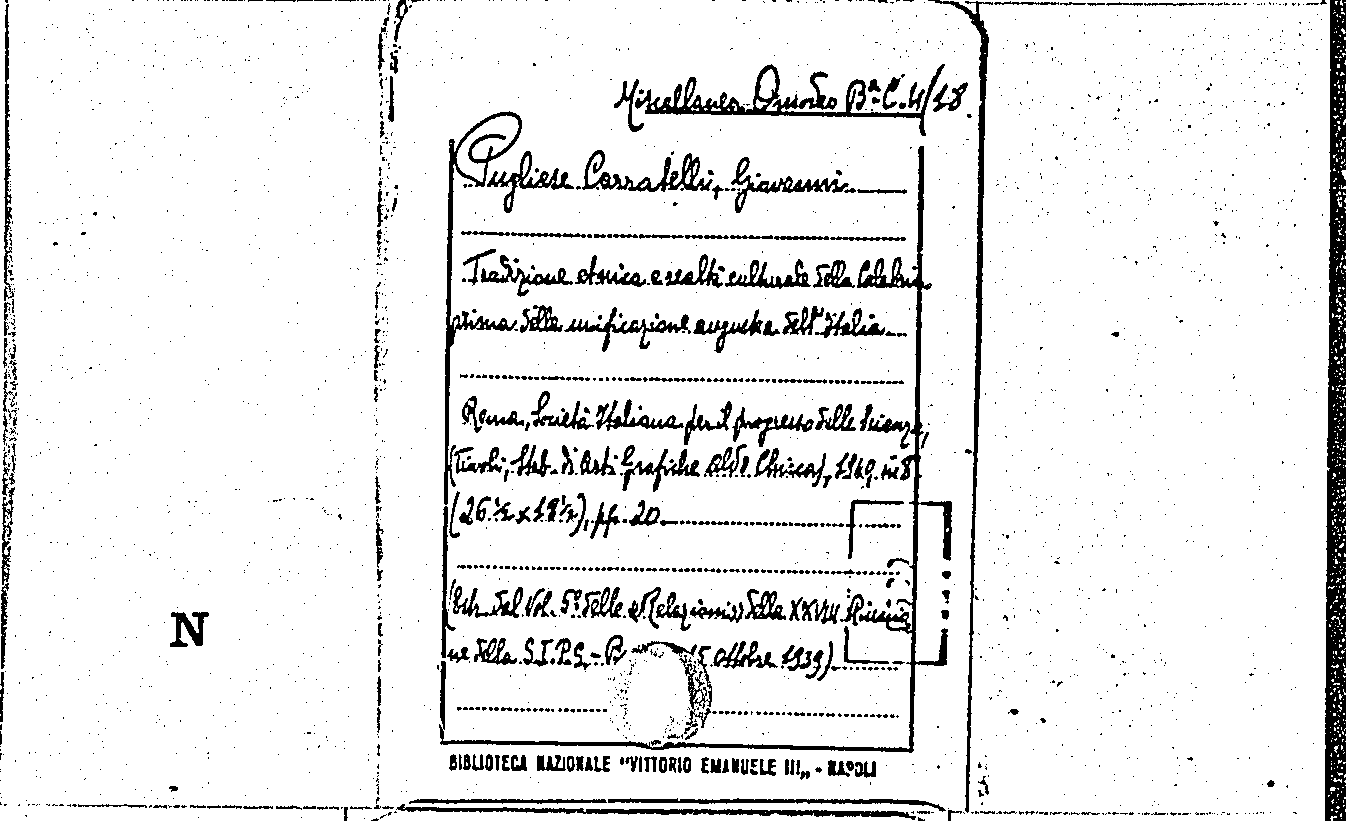 Miscellanea Omodeo Bª. C. 4/18
Pugliese Carratelli, Giovanni
Tradizione etnica e realtà culturale della Calabria
prima della unificazione augustea dell' Italia
Roma, Società Italiana per il progresso delle Scienze,
(Tivoli, Stab. di Arti Grafiche Aldo Chicca), 1940. in 8°.
(26 ½ x 18 ½), pp. 20
(Estr. dal Vol. 5° delle «Relazioni» della XXVIII Riunio
ne della S.I.P.S. - 15 ottobre 1939)
N
BIBLIOTECA NAZIONALE "VITTORIO EMANUELE III„ - NAPOLI